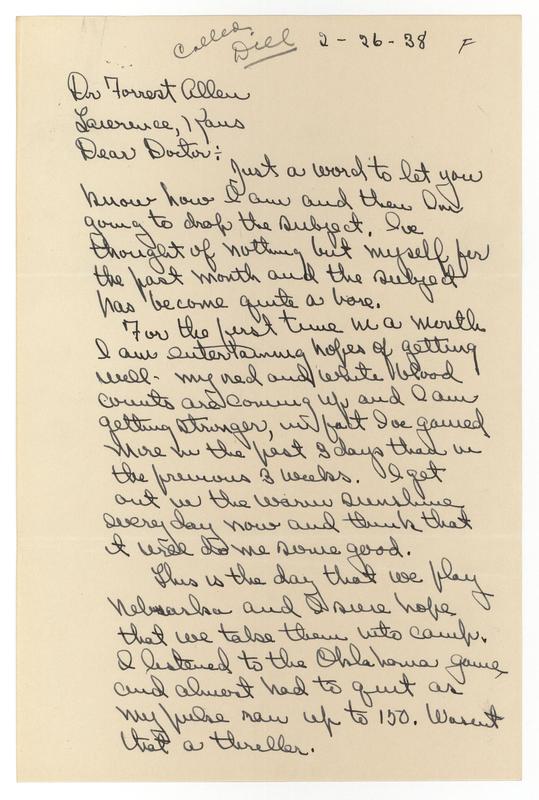 Called
Dill 2-26-38 F
Dr Forrest Allen
Lawrence, Kans
Dear Doctor:
Just a word to let you
know how I am and then Im
going to drop the subject. Ive
thought of nothing but myself for
the past month and the subject
has become quite a bore.
For the first time in a month
I am entertaining hopes of getting
well - my red and white blood
counts are coming up and I am
getting stronger, in fact Ive gained
more in the past 3 days than in
the previous 3 weeks. I get
out in the warm sunshine
everyday now and think that
it will do me some good.
This is the day that we play
Nebraska and I sure hope
that we take them into camp.
I listened to the Oklahoma game
and almost had to quit as
my pulse ran up to 150. Wasent
that a thriller.